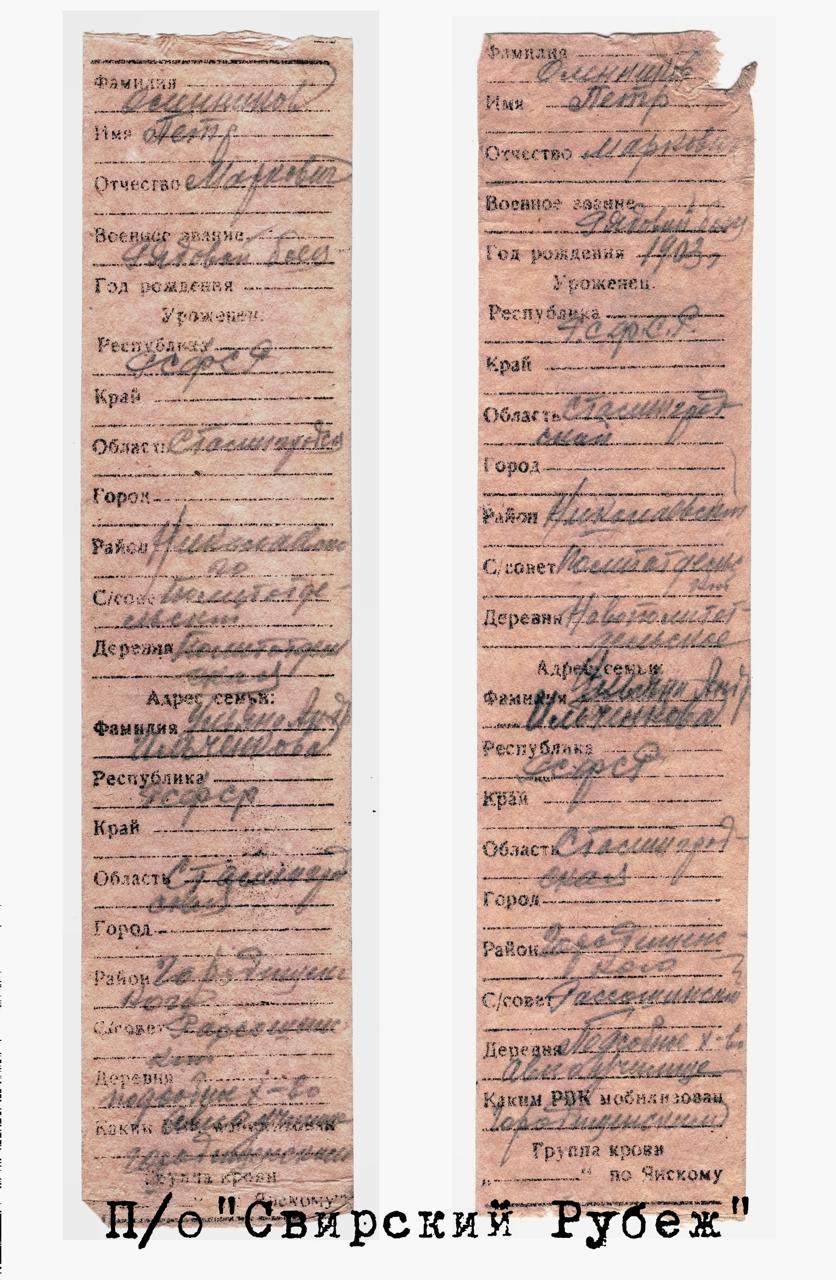 Фамилия
Имя Петр
Отчество Маркович
Военное звание
Рядовой боец
Год рождения
Уроженец:
Республика
РСФСР
Край
Область Сталинградск
Город
Район Николаевско
го
С/совет Политотде-
льский
Деревня Политотдель
ская
Адрес семьи:
Фамилия Ульяна Андр
Ильченкова
Республика
РСФСР
Край
Область Сталинград
ская
Город
Район Городищенс
кого
С/совет Рассошинс
кий
Деревня
подсобное х-во
Каким авиаучилищ
Городищенский
Группа крови
Янскому
Фамилия
Имя Петр
Отчество Маркович
Военное звание
Рядовой боец
Год рождения 1903
Уроженец:
Республика
Р.С.Ф.С.Р.
Край
Область Сталинград
ский
Город
Район Николаевский
С/совет Политотдельс
кий
Деревня Новополитот
дельское
Адрес семьи:
Фамилия Ульяна Андр
Ильченкова
Республика
РСФСР
Край
Область Сталинград-
ская
Город
Район Городищенс-
кого
С/совет Рассошинский
Деревня Подсобное х-во
авиаучилище
Каким РВК мобилизован
Городищенский
Группа крови
„ “ по Янскому
П/о "Свирский Рубеж"